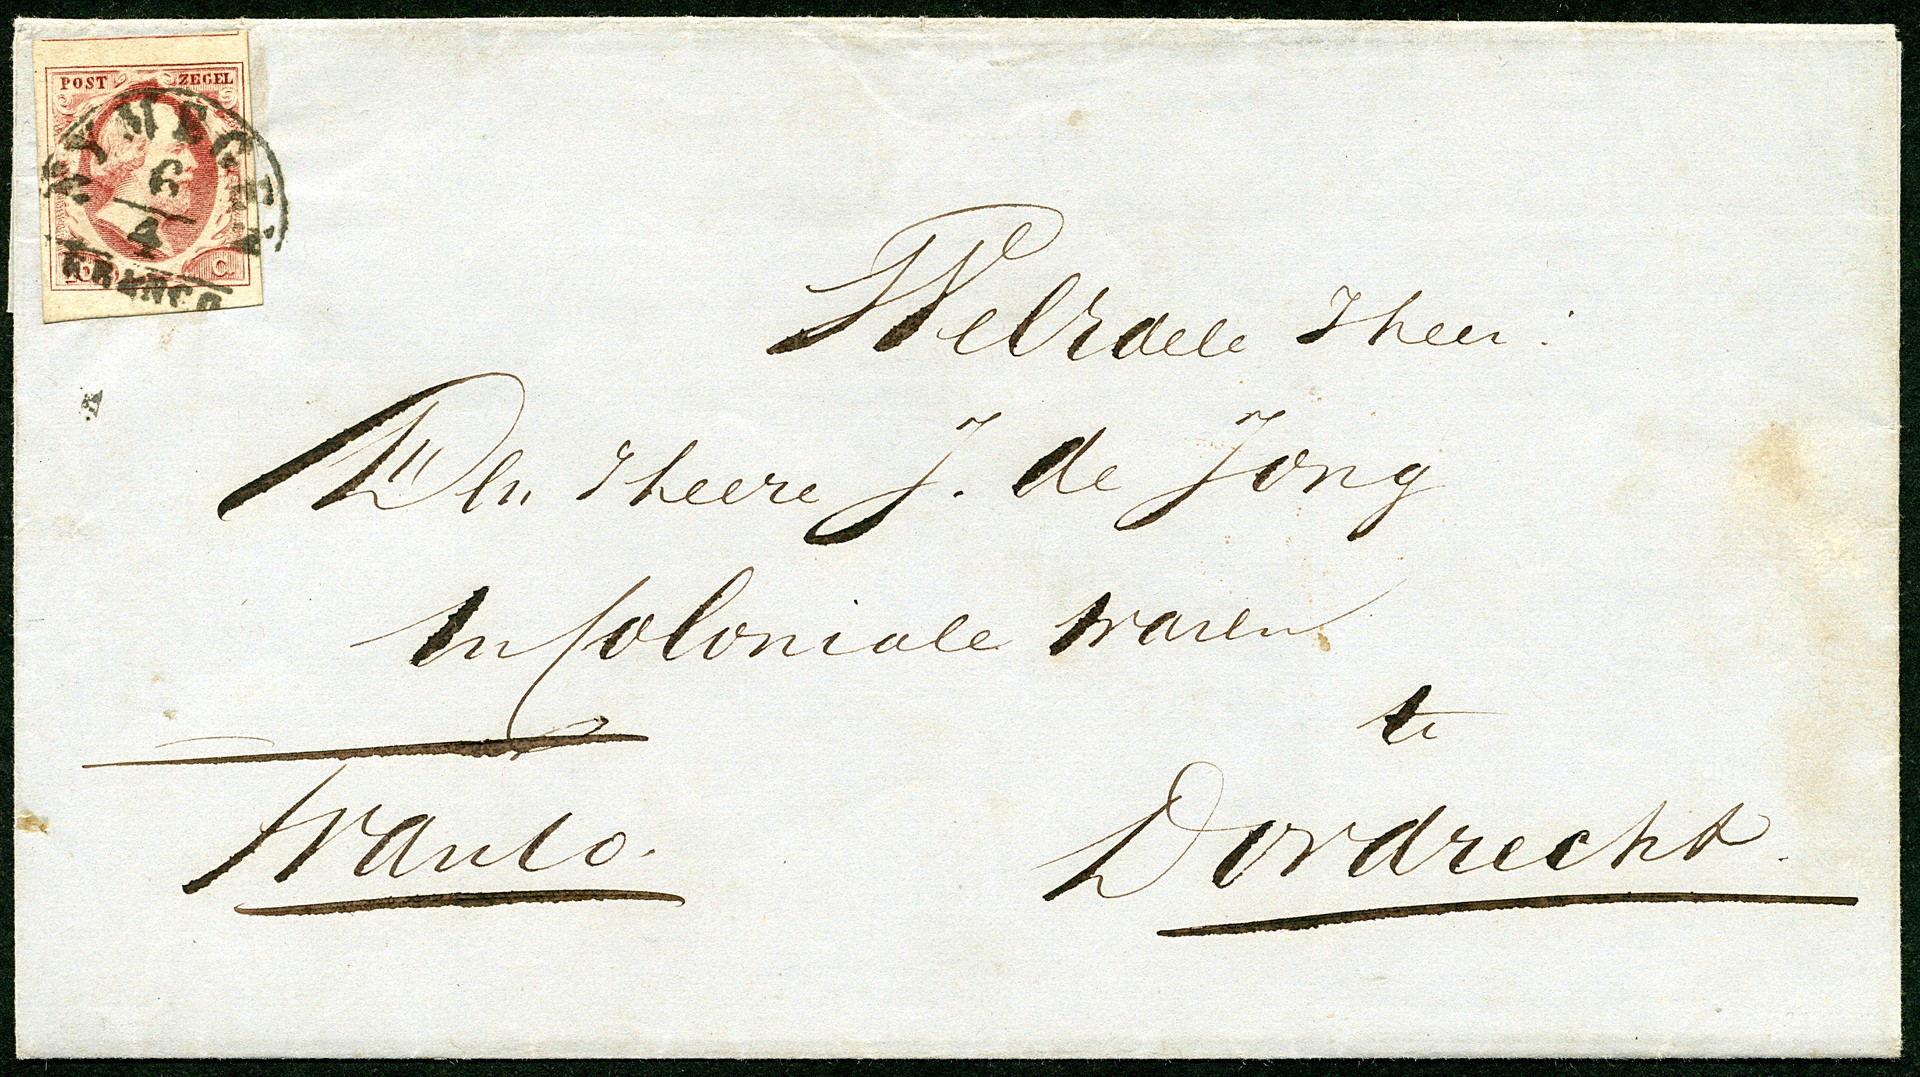 POST ZEGEL
NYMEGEN
6
4
FRANCO
C.
WelEdele Heer:
Den Heere J. de Jong
In Coloniale waren
te
Dordrecht.
Franco.